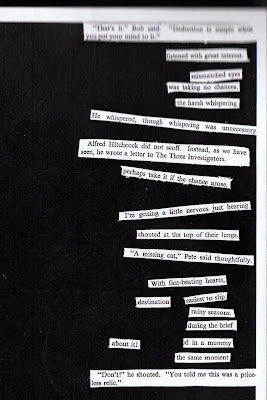 "That's it," Bob said. "Deduction is simple when
you put your mind to it."
listened with great interest.
mismatched eyes
was taking no chances.
the harsh whispering
He whispered, though whispering was unnecessary
Alfred Hitchcock did not scoff. Instead, as we have
seen, he wrote a letter to The Three Investigators.
perhaps take it if the chance arose.
I'm getting a little nervous just hearing
shouted at the top of their lungs.
"A missing cat," Pete said thoughtfully.
With fast-beating hearts,
destination easiest to slip
rainy seasons.
during the brief
about it! of in a mummy
the same moment
"Don't!" he shouted. "You told me this was a price-
less relic."